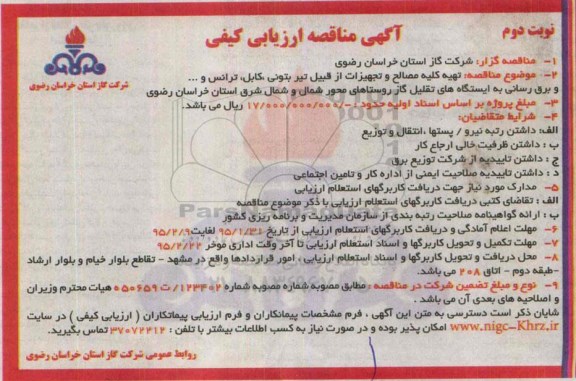 نوبت دوم
آگهی مناقصه ارزیابی کیفی
شرکت گاز استان خراسان رضوی
۱- مناقصه گزار: شرکت گاز استان خراسان رضوی
۲- موضوع مناقصه: تهیه کلیه مصالح و تجهیزات از قبیل تیر بتونی ،کابل، ترانس و ...
و برق رسانی به ایستگاه های تقلیل گاز روستاهای محور شمال و شمال شرق استان خراسان رضوی
۳- مبلغ پروژه بر اساس اسناد اولیه حدود -/۱۷/۰۰۰/۰۰۰/۰۰۰ ریال می باشد.
۴- شرایط متقاضیان:
الف: داشتن رتبه نیرو / پستها ،انتقال و توزیع
ب : داشتن ظرفیت خالی ارجاع کار
ج : داشتن تاییدیه از شرکت توزیع برق
د : داشتن تاییدیه صلاحیت ایمنی از اداره کار و تامین اجتماعی
۵- مدارک مورد نیاز جهت دریافت کاربرگهای استعلام ارزیابی
الف : تقاضای کتبی دریافت کاربرگهای استعلام ارزیابی با ذکر موضوع مناقصه
ب : ارائه گواهینامه صلاحیت رتبه بندی از سازمان مدیریت و برنامه ریزی کشور
۶- مهلت اعلام آمادگی و دریافت کاربرگهای استعلام ارزیابی از تاریخ ۹۵/۱/۳۱ لغایت ۹۵/۲/۹
۷- مهلت تکمیل و تحویل کاربرگها و اسناد استعلام ارزیابی تا آخر وقت اداری مورخ ۹۵/۲/۲۲
۸- محل دریافت و تحویل کاربرگها و اسناد استعلام ارزیابی ، امور قراردادها واقع در مشهد - تقاطع بلوار خیام و بلوار ارشاد
-طبقه دوم - اتاق ۲۰۸ می باشد.
۹- نوع و مبلغ تضمین شرکت در مناقصه : مطابق مصوبه شماره مصوبه شماره ۱۲۳۴۰۲/ت ۵۰۶۵۹ هیات محترم وزیران
و اصلاحیه های بعدی آن می باشد .
شایان ذکر است دسترسی به متن این آگهی ، فرم مشخصات پیمانکاران و فرم ارزیابی پیماتکاران ( ارزیابی کیفی ) در سایت
www.nigc-Khrz.ir امکان پذیر بوده و در صورت نیاز به کسب اطلاعات بیشتر با تلفن : ۳۷۰۷۲۴۱۲ تماس بگیرید.
روابط عمومی شرکت گاز استان خراسان رضوی